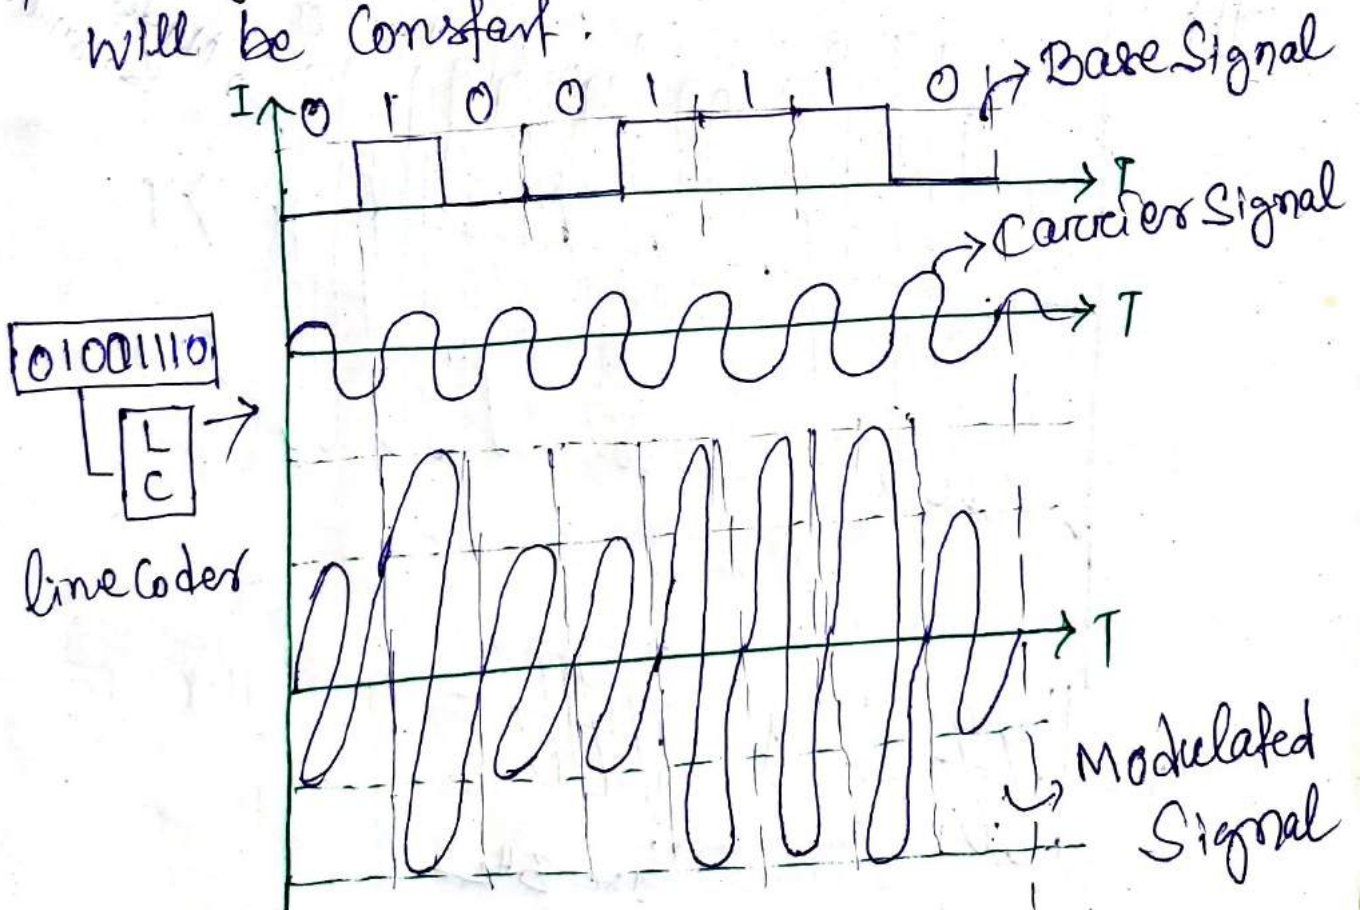 will be constant.
I 0 1 0 0 1 1 1 0 Base Signal
T
Carrier Signal
T
01001110
L
C
line coder
T
Modulated
Signal